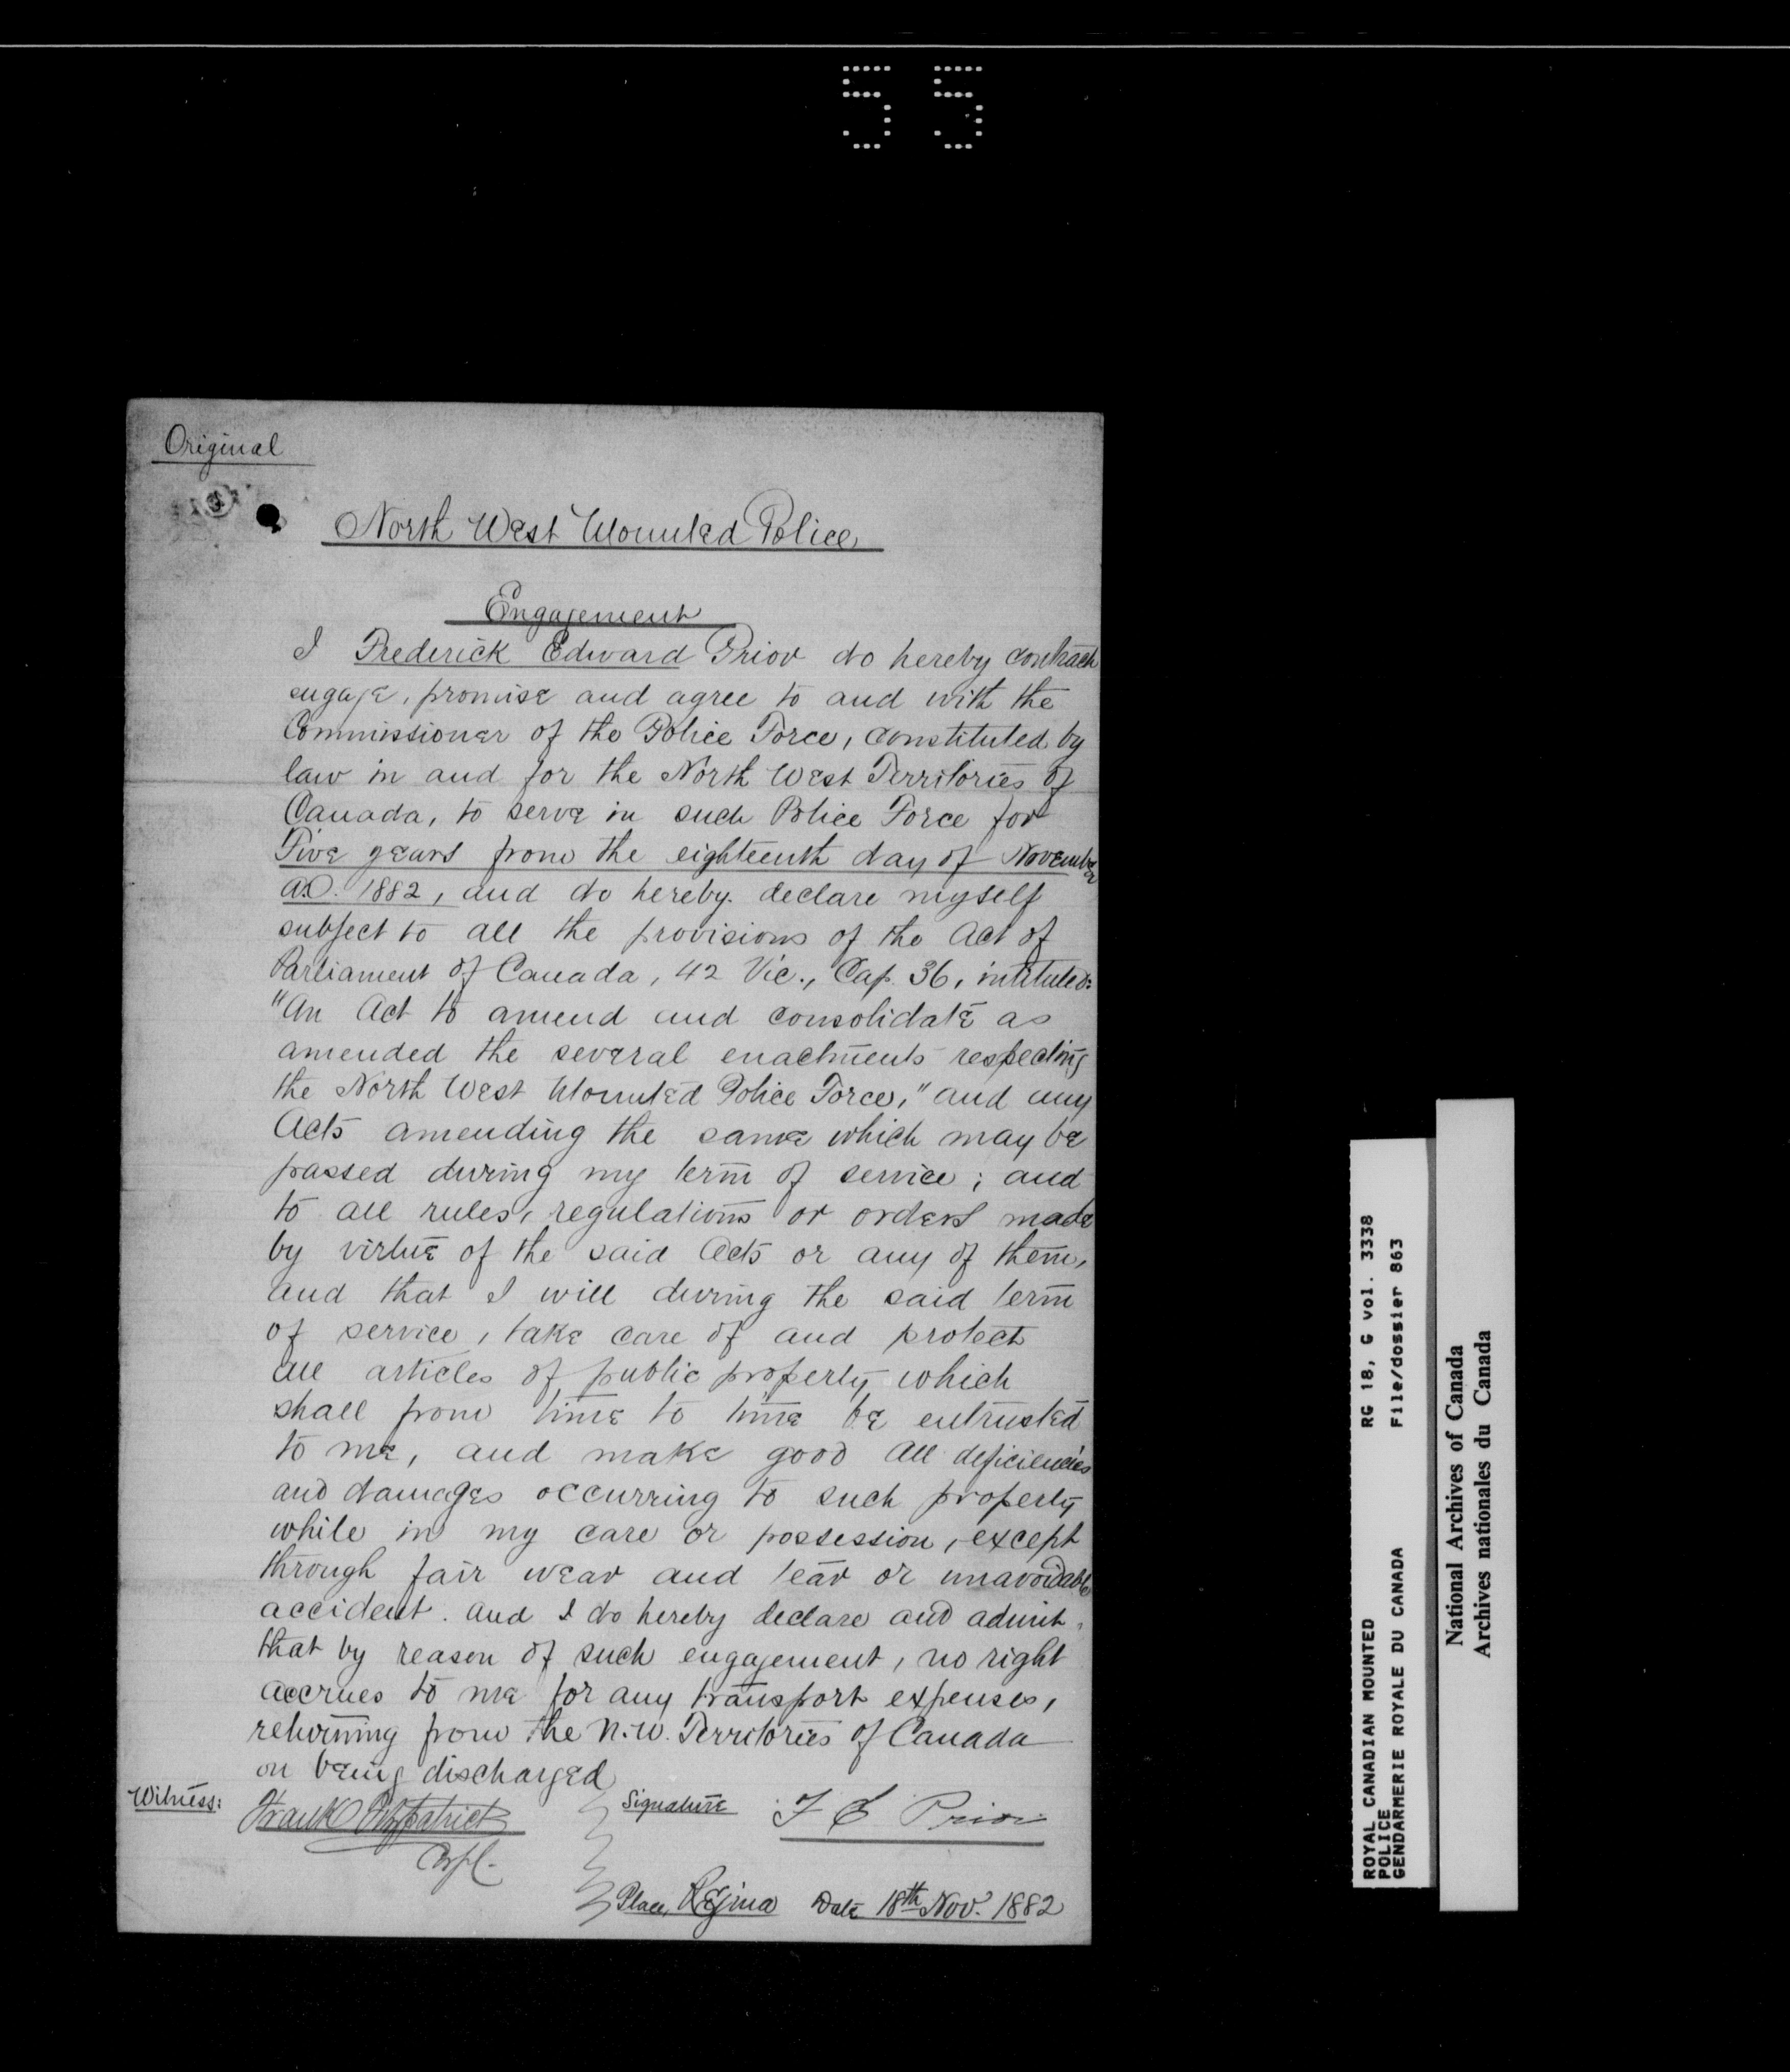 55
Original
North West Mounted Police
Engagement
I Frederick Edward Prior do hereby contract
engage, promise and agree to and with the
Commissioner of the Police Force, constituted by
law in and for the North West Territories of
Canada, to serve in such Police Force for
Five years from the eighteenth day of November
A.D. 1882, and do hereby declare myself
subject to all the provisions of the Act of
Parliament of Canada, 42 Vic., Cap. 36, intituled:
"An Act to amend and consolidate as
amended the several enactments respecting
the North West Mounted Police Force," and any
Acts amending the same which may be
passed during my term of service; and
to all rules, regulations or orders made
by virtue of the said Acts or any of them,
and that I will during the said term
of service, take care of and protect
all articles of public property which
shall from time to time be entrusted
to me, and make good all deficiencies
and damages occurring to such property
while in my care or possession, except
through fair wear and tear or unavoidable
accident. And I do hereby declare and admit,
that by reason of such engagement, no right
accrues to me for any transport expenses,
returning from the N.W. Territories of Canada
on being discharged
Witness: Frank Fitzpatrick Signature F E Prior
Corpl.
Place, Regina Date 18th Nov. 1882
ROYAL CANADIAN MOUNTED RG 18, G vol. 3338
POLICE
GENDARMERIE ROYALE DU CANADA File/dossier 863
National Archives of Canada
Archives nationales du Canada